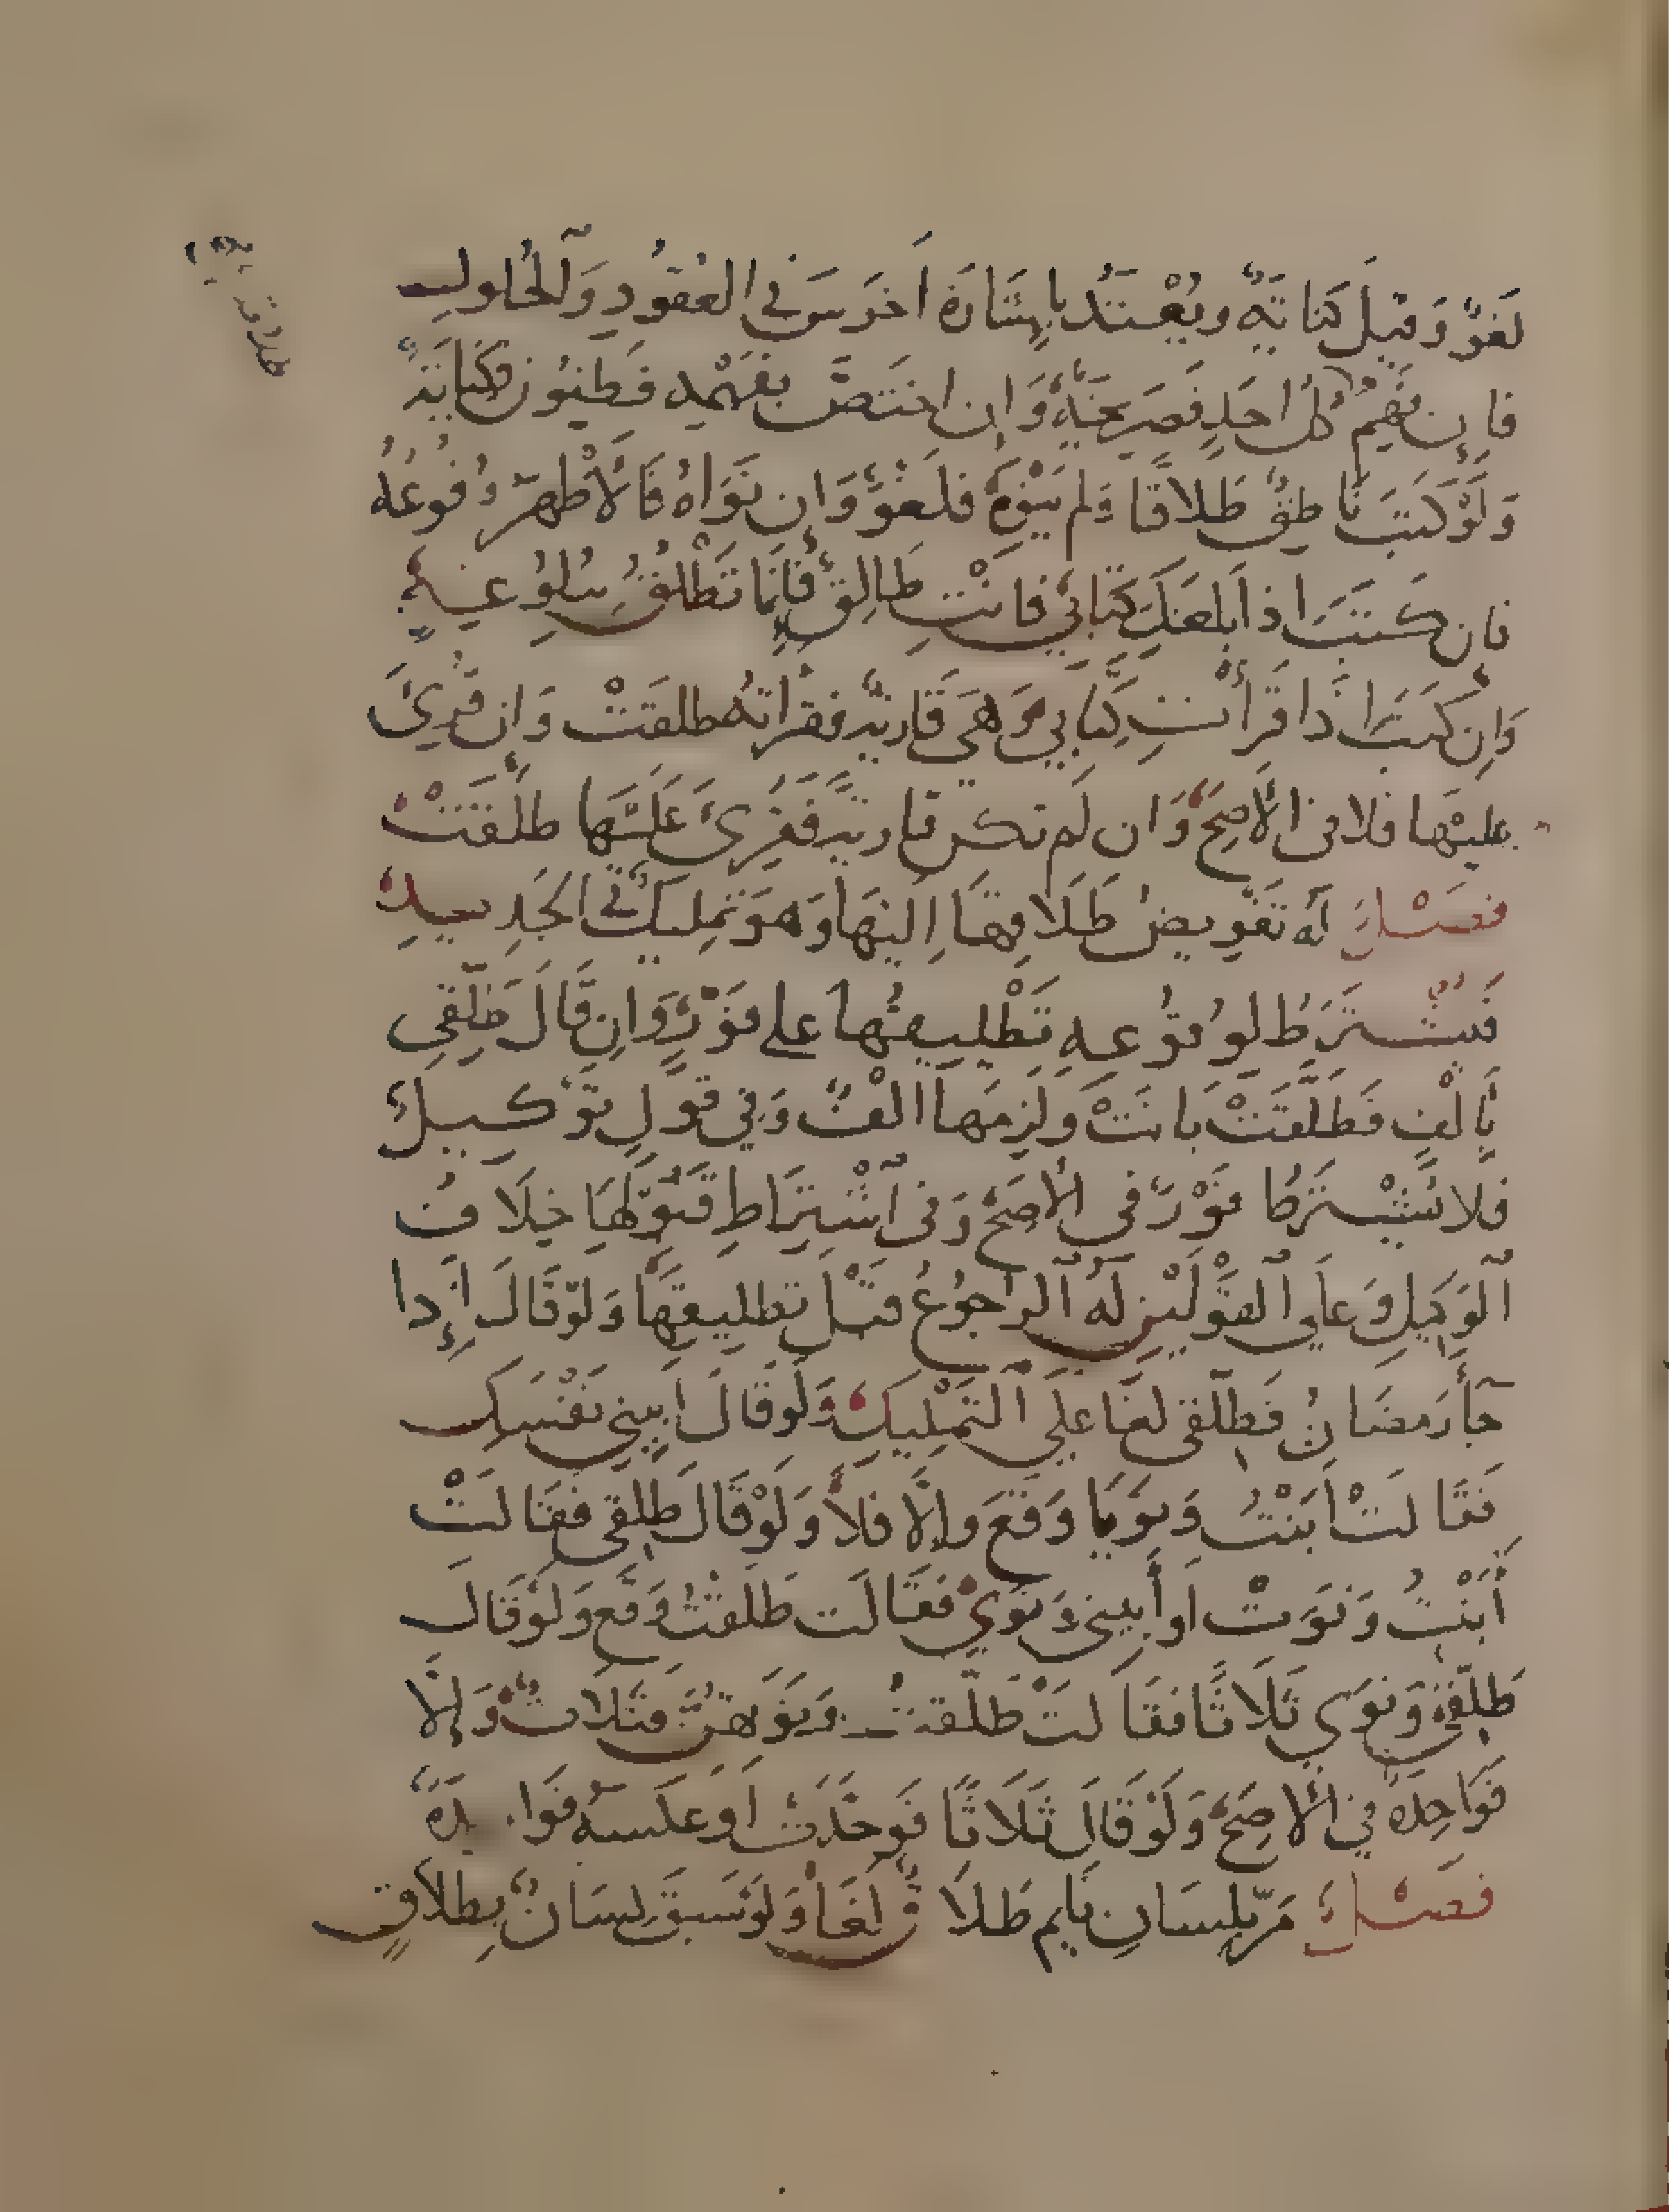 لَغْوٌ وَقِيلَ كِنَايَةٌ وَيُعْتَدُّ بِإِشَارَةِ أَخْرَسَ فِي العُقُودِ وَالحُلُولِ
فَإِنْ فَهِمَ كُلُّ أَحَدٍ فَصَرِيحَةٌ وَإِنِ اخْتَصَّ بِفَهْمِهِ فَطِنُونَ فَكِنَايَةٌ
وَلَوْ كَتَبَ نَاطِقٌ طَلَاقًا وَلَم يَنْوِهِ فَلَغْوٌ وَإِن نَوَاهُ فَالأَظْهَرُ وُقُوعُهُ
فَإِن كَتَبَ إِذَا بَلَغَكِ كِتَابِي فَأَنْتِ طَالِقٌ فَإِنَّمَا تَطْلُقُ بِبُلُوغِهِ
وَإِن كَتَبَ إِذَا قَرَأْتِ كِتَابِي وَهِيَ قَارِئَةٌ فَقَرَأَتْهُ طَلَقَتْ وَإِن قُرِئَ
عَلَيْهَا فَلَا فِي الأَصَحِّ وَإِن لَم تَكُن قَارِئَةً فَقُرِئَ عَلَيْهَا طَلُقَتْ
فَصْلٌ لَهُ تَفْوِيضُ طَلَاقِهَا إِلَيْهَا وَهُوَ تَمْلِيكٌ فِي الجَدِيدِ
فَيُشْتَرَطُ لِوُقُوعِهِ تَطْلِيقُهَا عَلَى فَوْرٍ وَإِن قَالَ طَلِّقِي
بِأَلْفٍ فَطَلَّقَتْ بَانَتْ وَلَزِمَهَا أَلْفٌ وَفِي قَوْلٍ تَوْكِيلٌ
فَلَا يُشْتَرَطُ فَوْرٌ فِي الأَصَحِّ وَفِي اشْتِرَاطِ قَبُولِهَا خِلَافُ
الْوَكِيلِ وَعَلَى القَوْلَيْنِ لَهُ الرجُوعُ قَبْلَ تَطْلِيقِهَا وَلَوْ قَالَ إِذَا
جَاءَ رَمَضَانُ فَطَلِّقِي لَغَا عَلَى التَّمْلِيكِ وَلَوْ قَالَ أَبِينِي نَفْسَكِ
فَقَالَتْ أَبَنْتُ وَنَوَيَا وَقَعَ وَإِلَّا فَلَا وَلَوْ قَالَ طَلِّقِي فَقَالَتْ
أَبَنْتُ وَنَوَتْ أَو أَبِينِي وَنَوَى فَقَالَت طَلَّقْتُ وَقَع وَلَوْ قَالَ
طَلِّقِي وَنَوَى ثَلَاثًا فَقَالَتْ طَلَّقْتُ وَنَوَتْهُنَّ فَثَلَاثٌ وَإِلَّا
فَوَاحِدَةٌ فِي الأَصَحِّ وَلَوْ قَالَ ثَلَاثًا فَوَحَّدَتْ أَو عَكْسُهُ فَوَاحِدَةٌ
فَصْلٌ مَرَّ بِلِسَانِ نَايِمٍ طَلَاقٌ لَغَا وَلَوْ سَبَقَ لِسَانٌ بِطَلَاقٍ